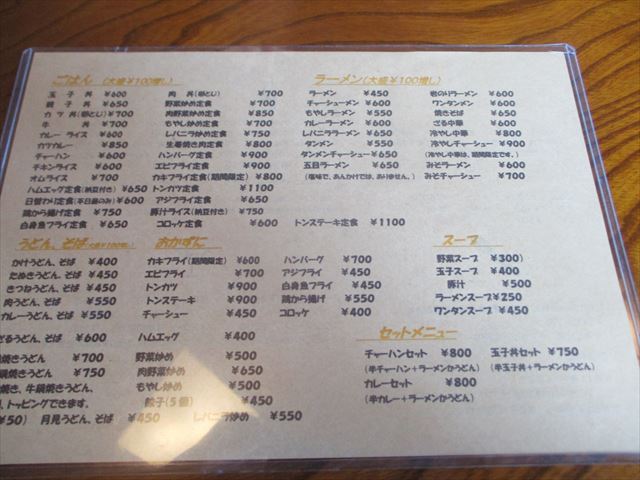 ごはん (大盛¥100増し)
玉子丼 ¥600
餃子丼 ¥650
カツ丼(卵とじ) ¥700
牛丼 ¥600
カレーライス ¥600
カツカレー ¥850
チャーハン ¥600
チキンライス ¥600
オムライス ¥700
ハムエッグ定食(納豆付き) ¥650
日替わり定食(平日昼のみ) ¥600
鶏から揚げ定食 ¥750
白身魚フライ定食 ¥650
肉丼(卵とじ) ¥700
野菜炒め定食 ¥700
肉野菜炒め定食 ¥850
もやし炒め定食 ¥700
レバニラ炒め定食 ¥750
生姜焼き肉定食 ¥800
ハンバーグ定食 ¥900
エビフライ定食 ¥900
カキフライ定食(期間限定) ¥800
トンカツ定食 ¥1100
アジフライ定食 ¥650
豚汁ライス(納豆付き) ¥750
コロッケ定食 ¥600
トンステーキ定食 ¥1100
ラーメン(大盛¥100増し)
ラーメン ¥450
チャーシューメン ¥600
もやしラーメン ¥550
カレーラーメン ¥600
レバニララーメン ¥650
タンメン ¥550
タンメンチャーシュー ¥650
五目ラーメン ¥650
(塩味で、あんかけでは、ありません。)
岩のりラーメン ¥600
ワンタンメン ¥600
焼きそば ¥650
ざる中華 ¥600
冷やし中華 ¥800
冷やしチャーシュー ¥900
(冷やし中華は、期間限定です。)
みそラーメン ¥600
みそチャーシュー ¥700
うどん、そば(大盛¥100増し)
かけうどん、そば ¥400
たぬきうどん、そば ¥450
きつねうどん、そば ¥450
肉うどん、そば ¥550
カレーうどん、そば ¥550
ざるうどん、そば ¥600
焼きうどん ¥700
鍋焼きうどん ¥750
焼き、牛鍋焼きうどん、
、トッピングできます。
¥50) 月見うどん、そば ¥450
おかずに
カキフライ(期間限定) ¥600
エビフライ ¥700
トンカツ ¥900
トンステーキ ¥900
チャーシュー ¥450
ハムエッグ ¥400
野菜炒め ¥500
肉野菜炒め ¥650
もやし炒め ¥500
餃子(5個) ¥450
レバニラ炒め ¥550
ハンバーグ ¥700
アジフライ ¥450
白身魚フライ ¥450
鶏から揚げ ¥550
コロッケ ¥400
スープ
野菜スープ ¥300)
玉子スープ ¥400
豚汁 ¥500
ラーメンスープ¥250
ワンタンスープ ¥450
セットメニュー
チャーハンセット ¥800
(半チャーハン+ラーメンかうどん)
カレーセット ¥800
(半カレー+ラーメンかうどん)
玉子丼セット ¥750
(半玉子丼+ラーメンかうどん)